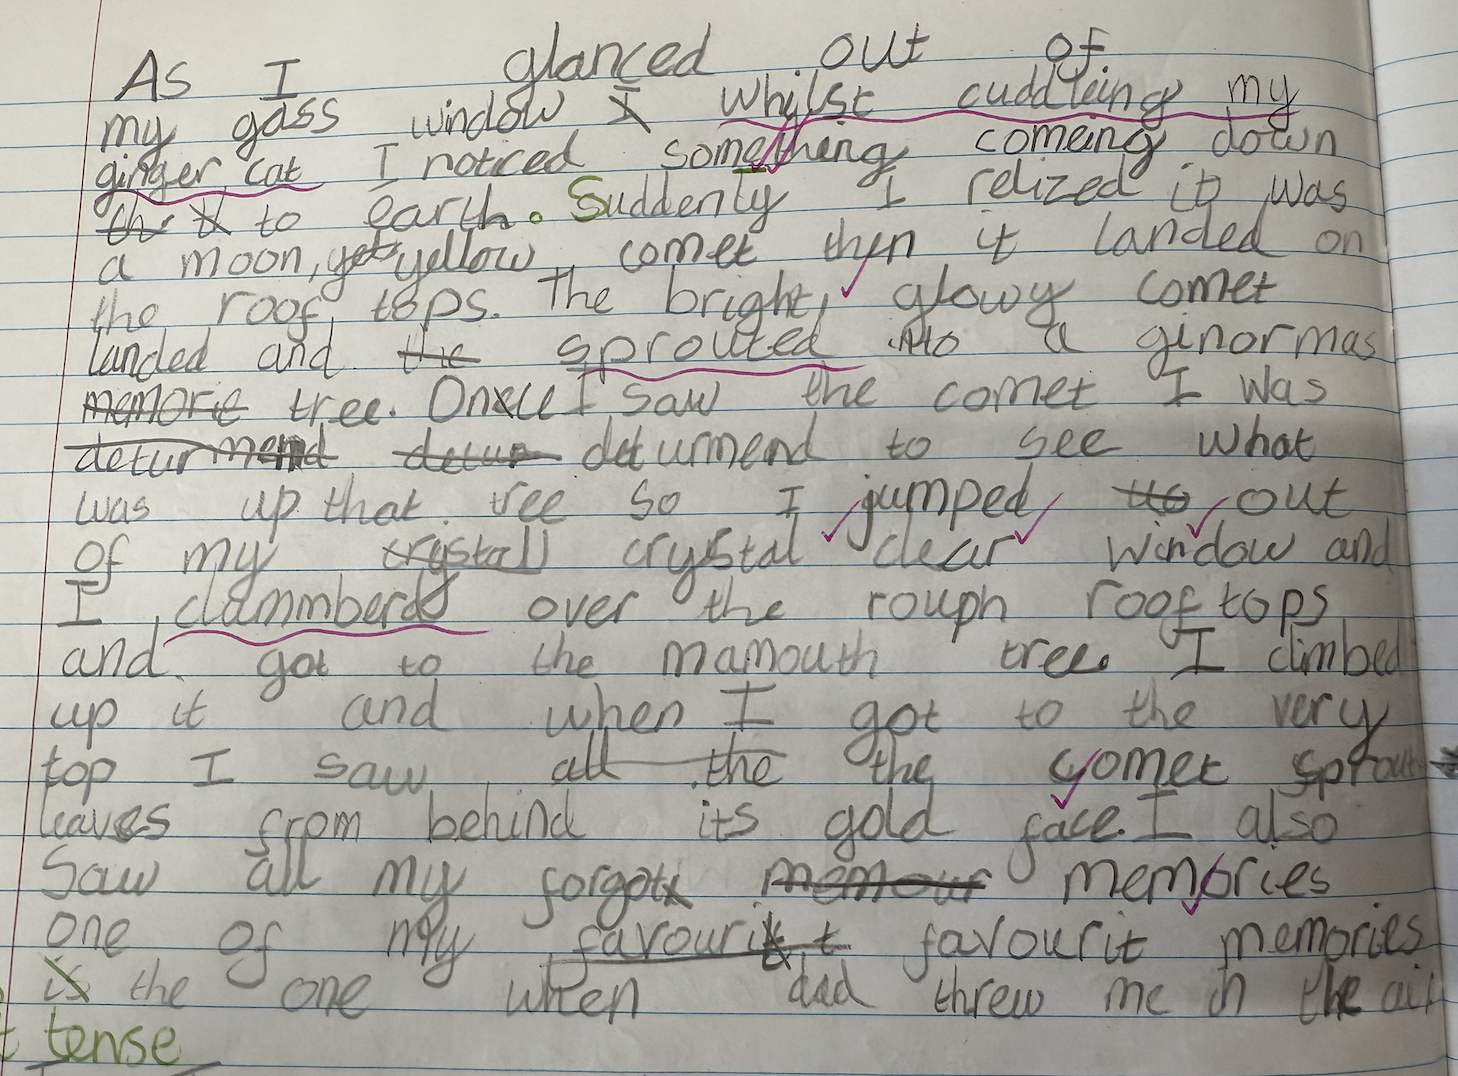 As I glanced out of
my gass window I whilst cuddleing my
ginger cat I noticed something comeing down
the to earth. Suddenly I relized it was
a moon, yellow comet then it landed on
the roof tops. The bright, glowy comet
landed and the sprouted into a ginormas
memorie tree. Once I saw the comet I was
deturmend detur deturmend to see what
was up that tree so I jumped out
of my crystall crystal clear window and
I clammberd over the rouph roof tops
and got to the mamouth tree. I climbed
up it and when I got to the very
top I saw all the the comet sprout
leaves from behind its gold face. I also
saw all my forgot memour memories
one of my favourit favourit memories
is the one when dad threw me in the air
tense